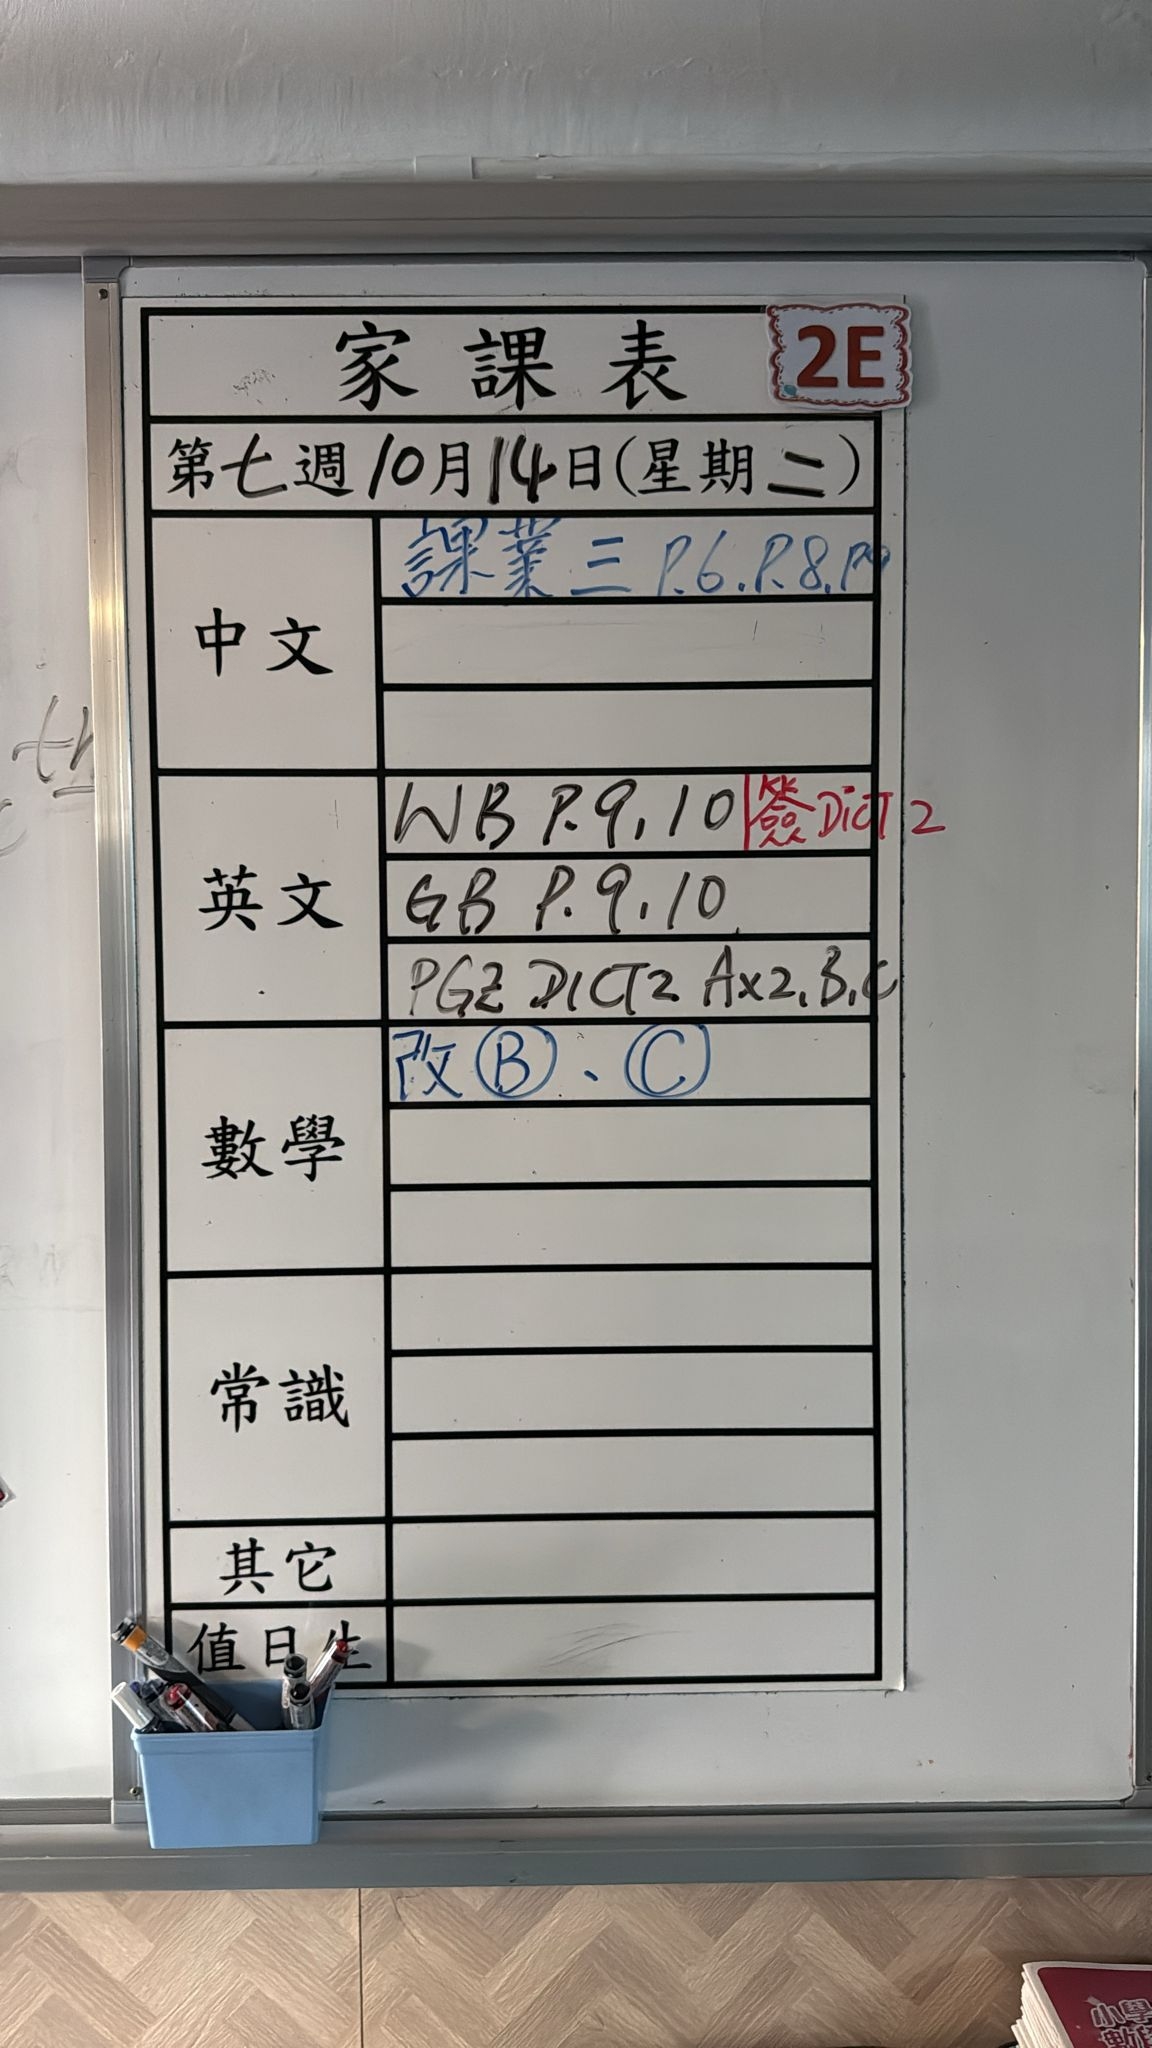 家課表 2E
第七週10月14日(星期二)
中文
課業三 P.6.P.8.P9
英文
WB P.9,10 簽DICT 2
GB P.9,10
DICT2 Ax2,B,C
數學
改Ⓑ、Ⓒ
常識
其它
值日生
小學
th